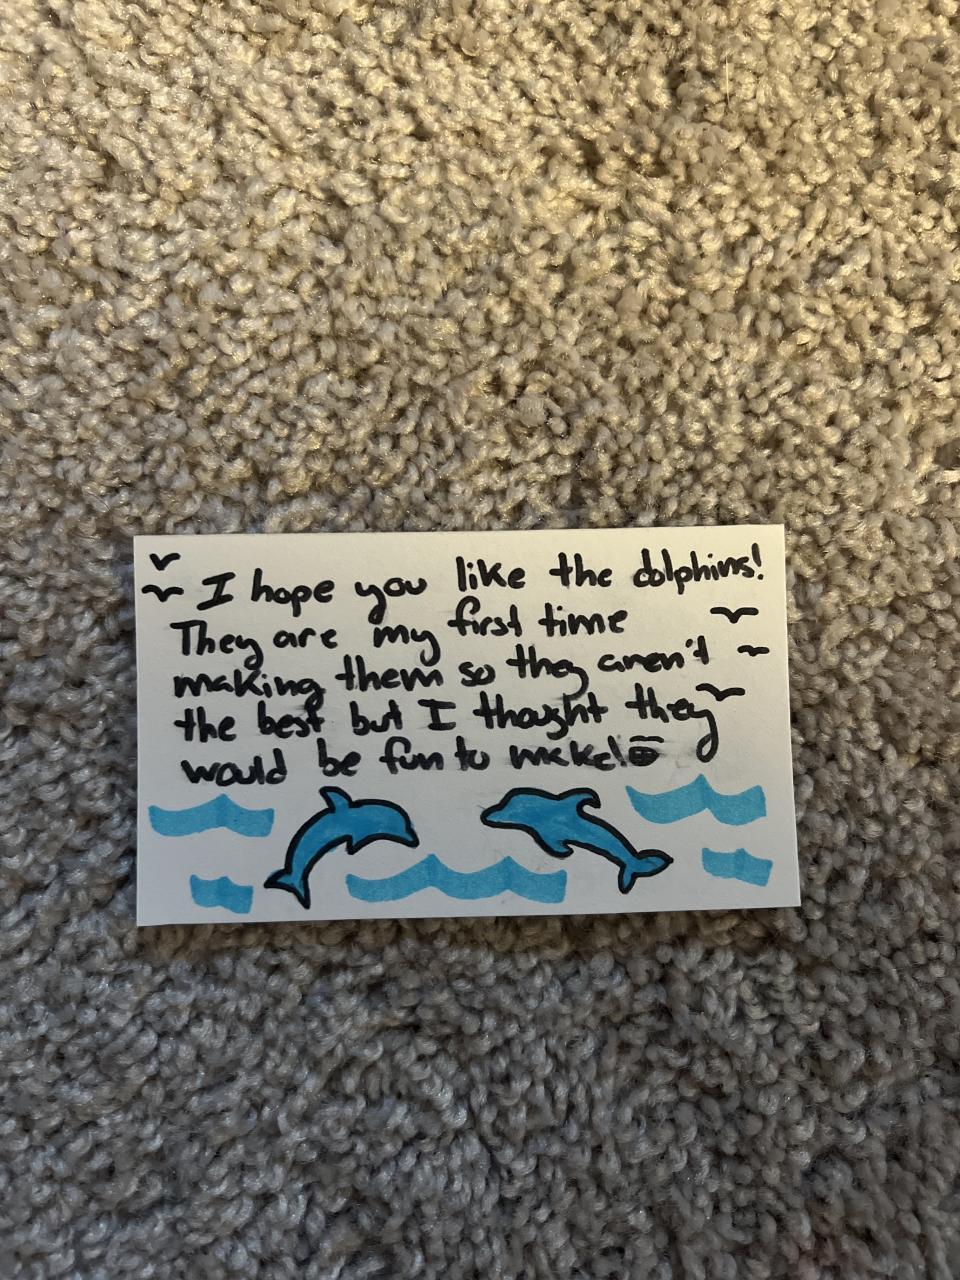 I hope you like the dolphins!
They are my first time
making them so they aren't
the best but I thought they
would be fun to make!